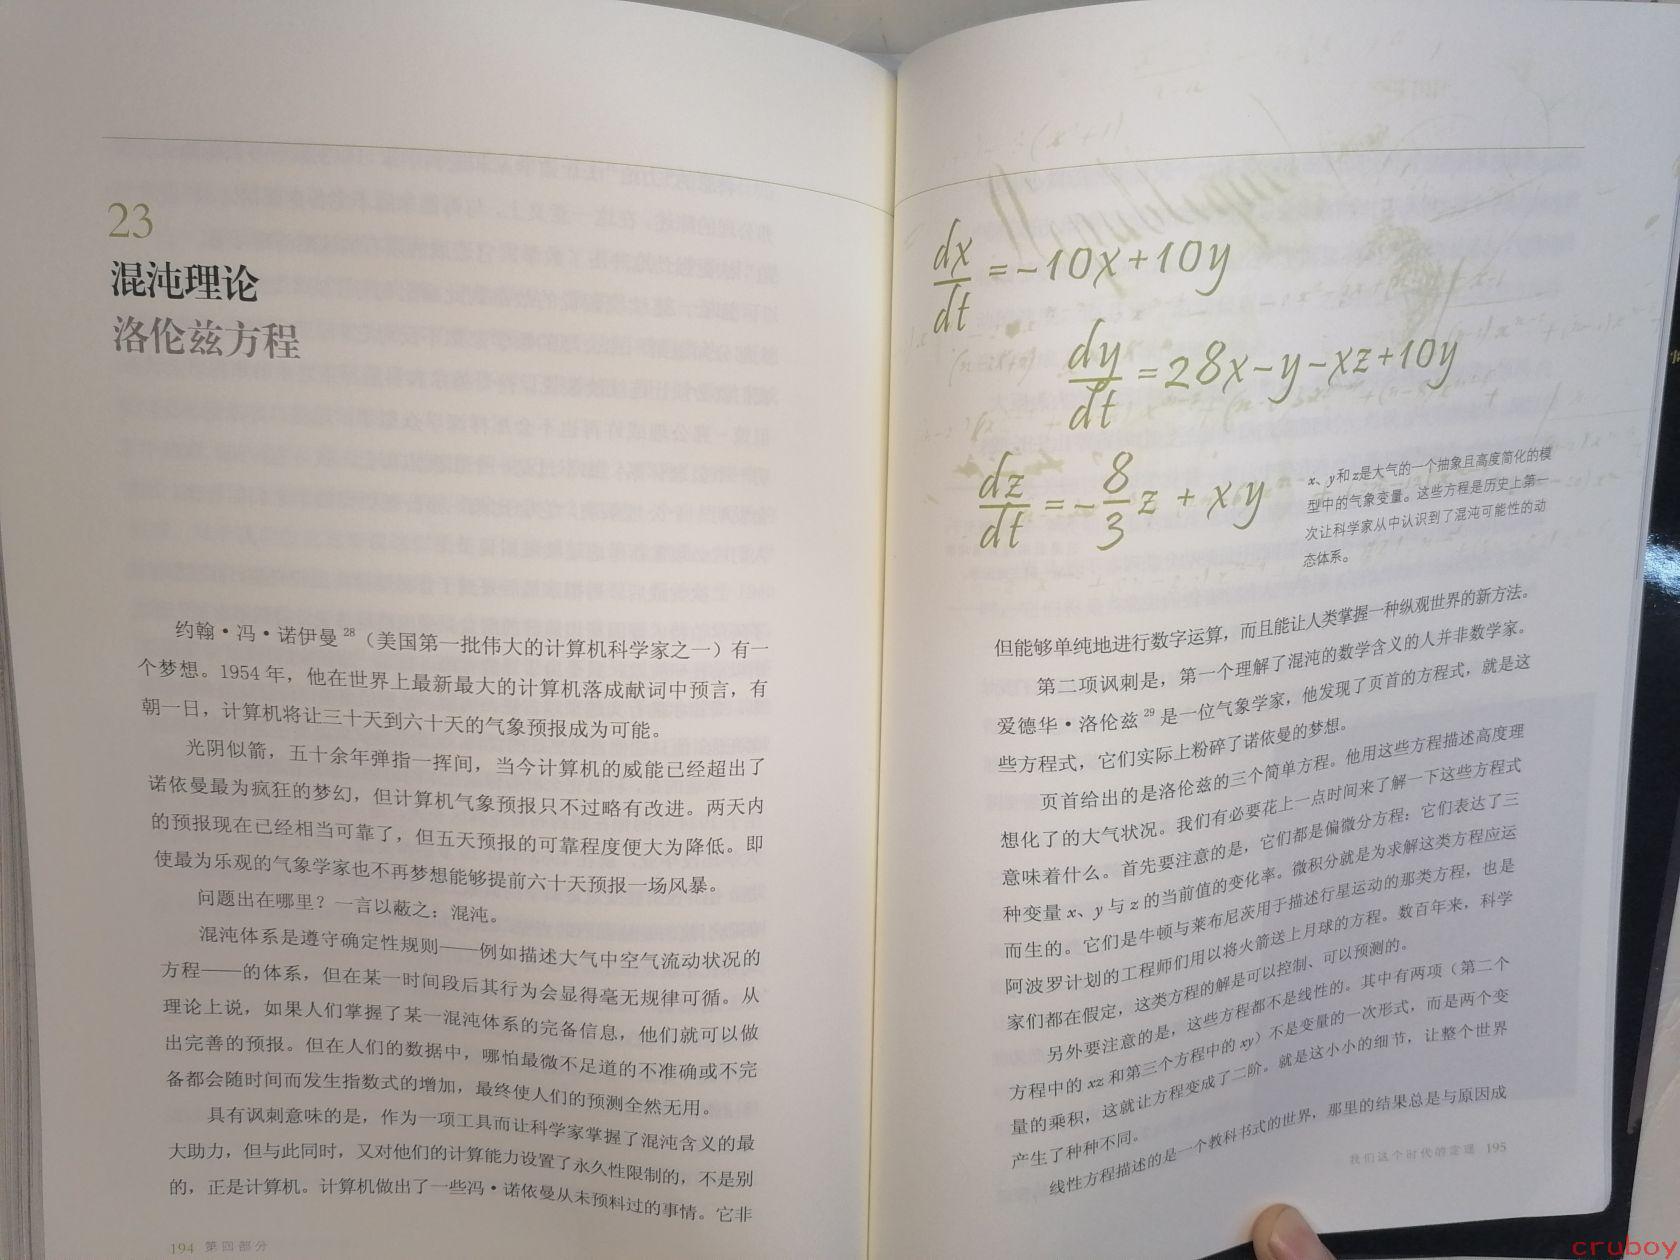 23
混沌理论
洛伦兹方程
约翰·冯·诺伊曼28（美国第一批伟大的计算机科学家之一）有一
个梦想。1954年，他在世界上最新最大的计算机落成献词中预言，有
朝一日，计算机将让三十天到六十天的气象预报成为可能。
光阴似箭，五十余年弹指一挥间，当今计算机的威能已经超出了
诺依曼最为疯狂的梦幻，但计算机气象预报只不过略有改进。两天内
的预报现在已经相当可靠了，但五天预报的可靠程度便大为降低。即
使最为乐观的气象学家也不再梦想能够提前六十天预报一场风暴。
问题出在哪里？一言以蔽之：混沌。
混沌体系是遵守确定性规则——例如描述大气中空气流动状况的
方程——的体系，但在某一时间段后其行为会显得毫无规律可循。从
理论上说，如果人们掌握了某一混沌体系的完备信息，他们就可以做
出完善的预报。但在人们的数据中，哪怕最微不足道的不准确或不完
备都会随时间而发生指数式的增加，最终使人们的预测全然无用。
具有讽刺意味的是，作为一项工具而让科学家掌握了混沌含义的最
大助力，但与此同时，又对他们的计算能力设置了永久性限制的，不是别
的，正是计算机。计算机做出了一些冯·诺依曼从未预料过的事情。它非
194 第四部分
dx/dt=-10x+10y
dy/dt=28x-y-xz+10y
dz/dt=-8/3z+xy
x、y和z是大气的一个抽象且高度简化的模
型中的气象变量。这些方程是历史上第一
次让科学家从中认识到了混沌可能性的动
态体系。
但能够单纯地进行数字运算，而且能让人类掌握一种纵观世界的新方法。
第二项讽刺是，第一个理解了混沌的数学含义的人并非数学家。
爱德华·洛伦兹29是一位气象学家，他发现了页首的方程式，就是这
些方程式，它们实际上粉碎了诺依曼的梦想。
页首给出的是洛伦兹的三个简单方程。他用这些方程描述高度理
想化了的大气状况。我们有必要花上一点时间来了解一下这些方程式
意味着什么。首先要注意的是，它们都是偏微分方程：它们表达了三
种变量x、y与z的当前值的变化率。微积分就是为求解这类方程应运
而生的。它们是牛顿与莱布尼茨用于描述行星运动的那类方程，也是
阿波罗计划的工程师们用以将火箭送上月球的方程。数百年来，科学
家们都在假定，这类方程的解是可以控制、可以预测的。
另外要注意的是，这些方程都不是线性的。其中有两项（第二个
方程中的xz和第三个方程中的xy）不是变量的一次形式，而是两个变
量的乘积，这就让方程变成了二阶。就是这小小的细节，让整个世界
产生了种种不同。
线性方程描述的是一个教科书式的世界，那里的结果总是与原因成
我们这个时代的定理 195
cruboy